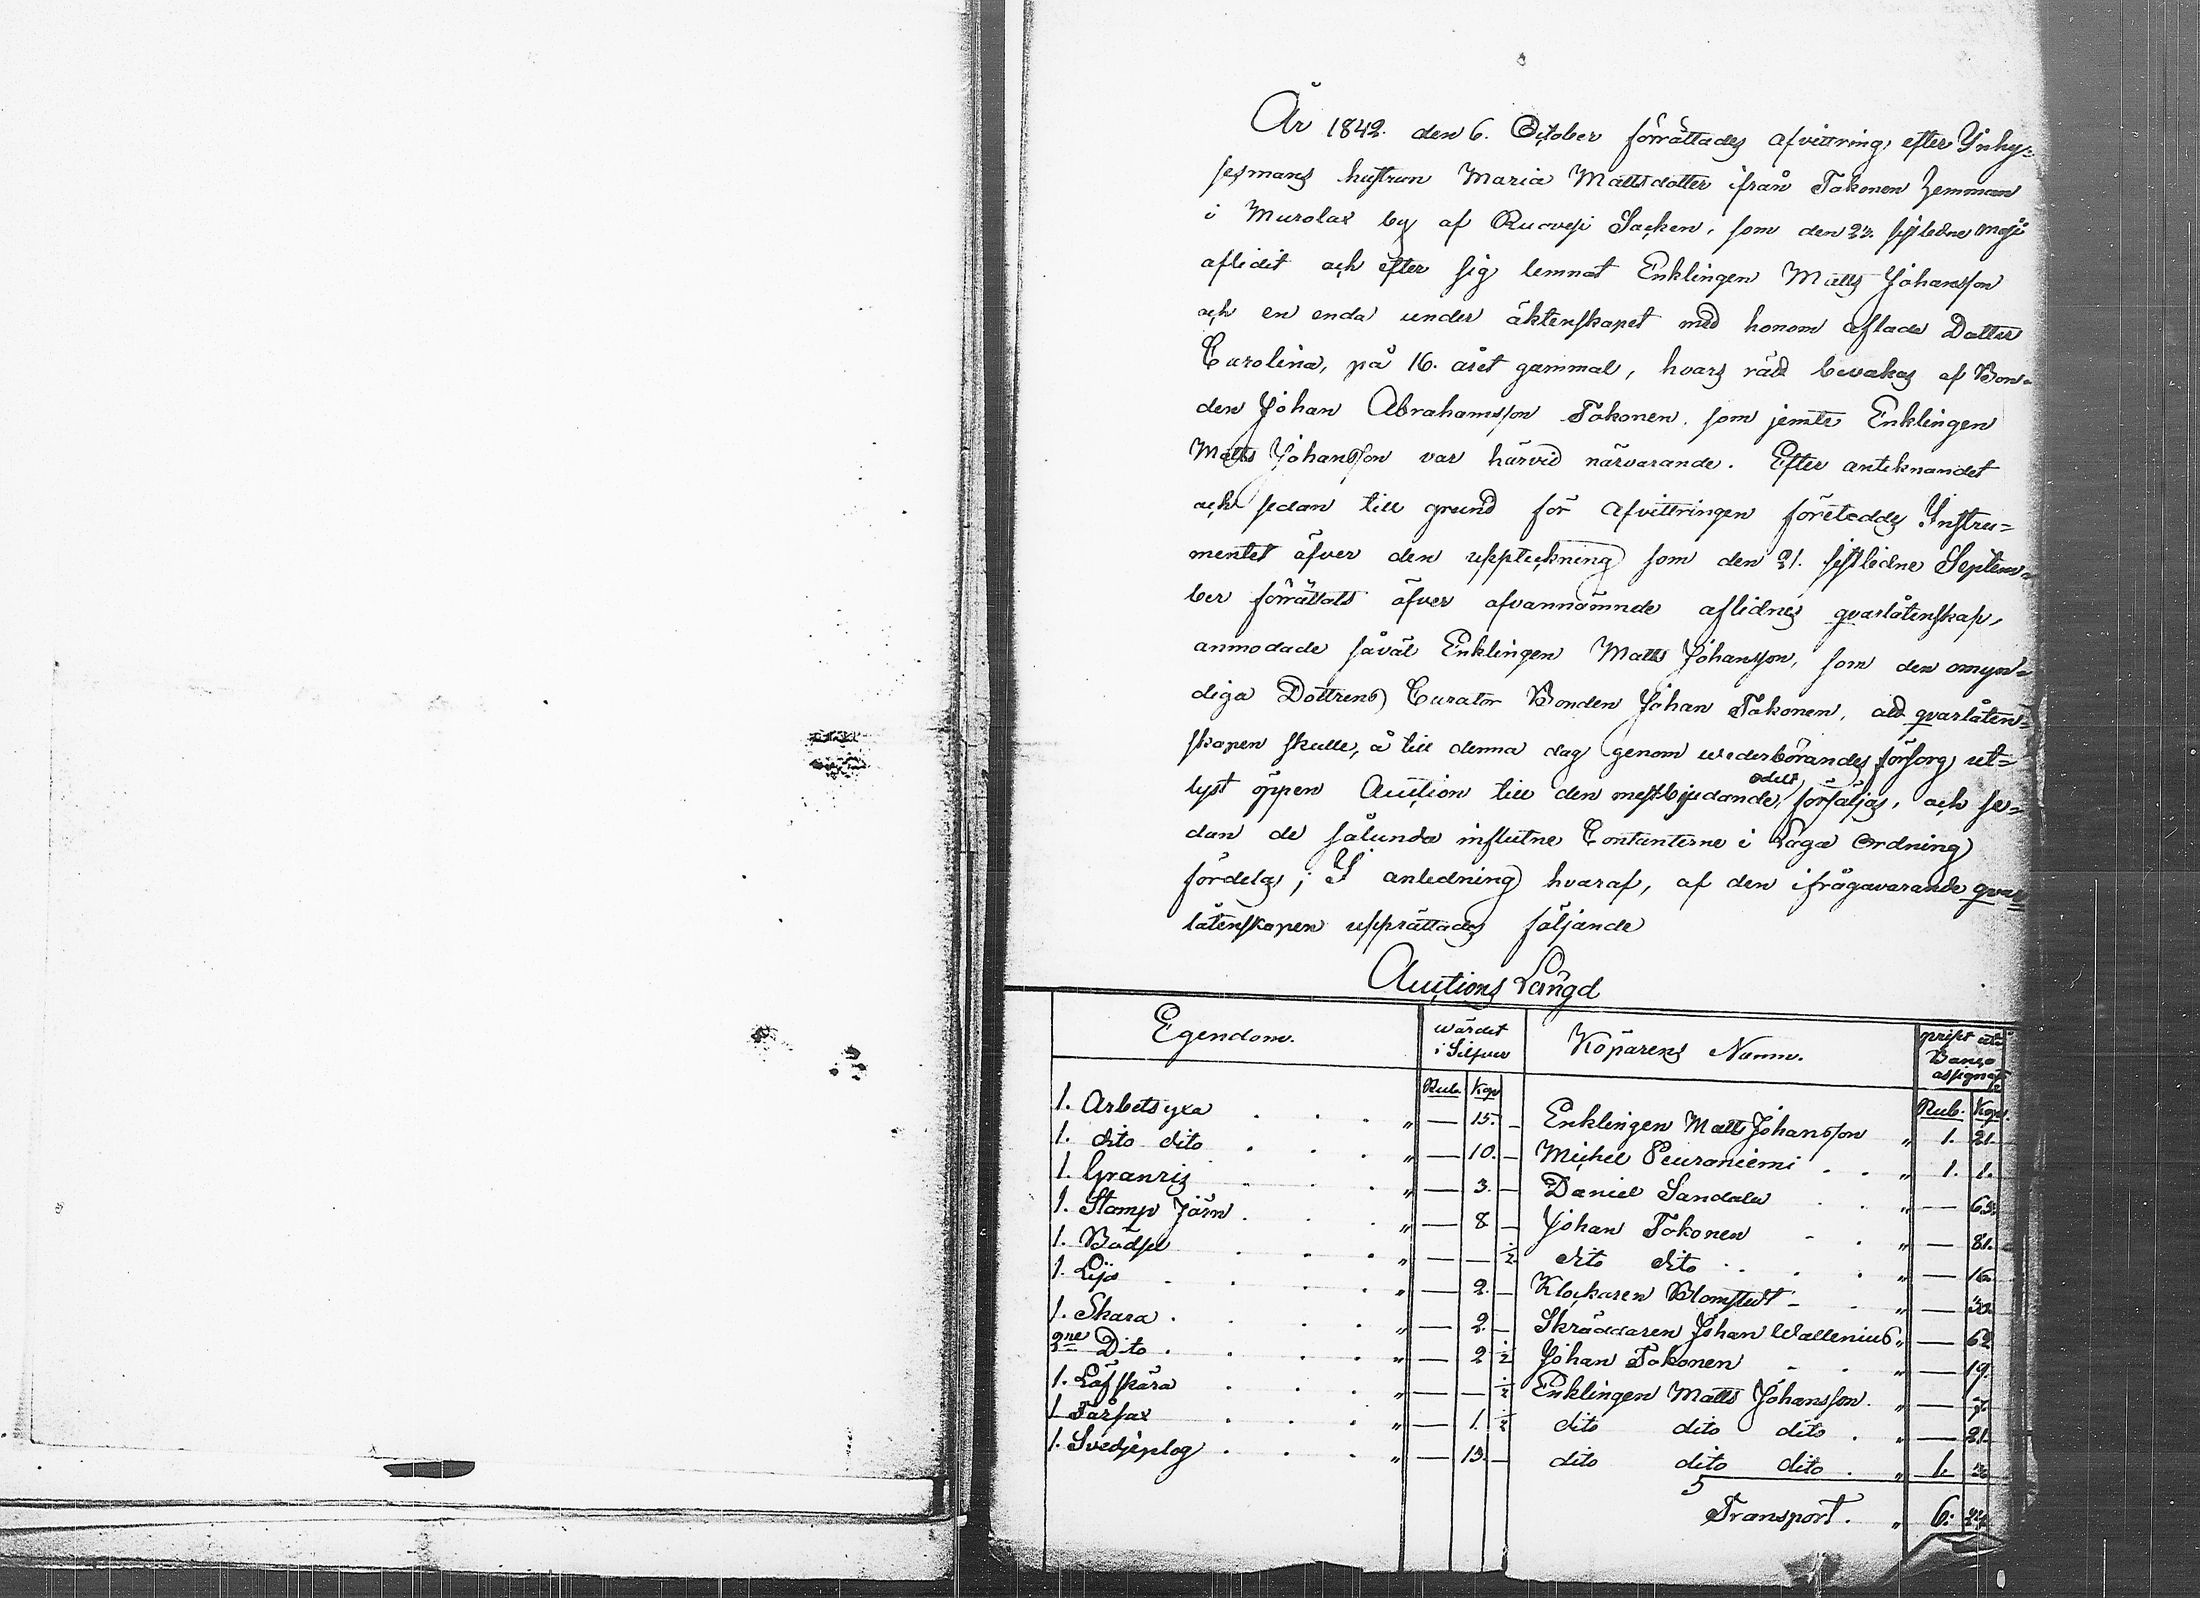 År 1842. den 6. October förrättades afvittring, efter Inhy-
sesmans hustrun Maria Mattsdotter ifrån Tokonen hemman
i Murolax by af Ruovesi Sacken, som den sistledne Maji
aflidit och efter sig lemnat Enklingen Matts Johansson
och en enda under äktenskapet med honom aflade Dotter
Carolina, på 16. året gammal, hvars rätt bevakas af Bon-
den Johan Abrahamsson Tokonen, som jemte Enklingen
Matts Johansson var härvid närvarande. Efter anteknandet
och sedan till grund för afvittringen företeddes Instru=
mentet öfver den uppteckning som den 21. sistledne Septem=
ber förrättats öfver ofvannämnde aflidnes qvarlåtenskap,
anmodade såväl Enklingen Matts Johansson, som den omyn=
diga Dottrens Curator Bonden Johan Tokonen, att qvarlåten=
skapen skulle, å till denna dag genom wederbörandes försorg ut=
lyst öppen Auction till den mestbjudande odelt försäljas, och se=
dan de sålunda influtne Contanterne i Laga Ordning
fördelas; I anledning hvaraf, af den ifrågavarande qvar
låtenskapen upprättades följande
Auctions Längd
Egendom. Wärdet i Silfver Köparens Namn. Banco assignat.
Rub. Kop. Rub. Kop.
1. Arbetsyxa . . . " — 15. — Enklingen Matts Johansson " 1. 21.
1. dito dito . . . " — 10. — Michel Peuraniemi . . " 1. 1.
1. Granris . . . " — 3. — Daniel Sandala . . " — 63.
1. Stamp Järn . . . " — 8 — Johan Tokonen . . " — 81.
1. Bödsel . . . " — — ½ dito dito . . . " — 16.
1. Lija . . . " — 2. — Klockaren Blomstedt . " — 30.
1. Skära . . . " — 2. — Skräddaren Johan Wallenius " — 62.
2ne Dito . . . " — 2 ½ Johan Tokonen . . " — 19.
1. Löfskära . . . " — — ½ Enklingen Matts Johansson. " — 7.
1 Tårsax . . . " — 1. ½ dito dito dito . " — 21.
1. Svedjeplog . . . " — 13. — dito dito dito . " 1.
Transport. " 6.